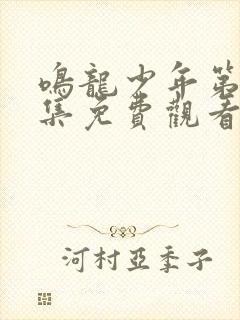 鳴龍少年第
集免費觀看
河村亞季子